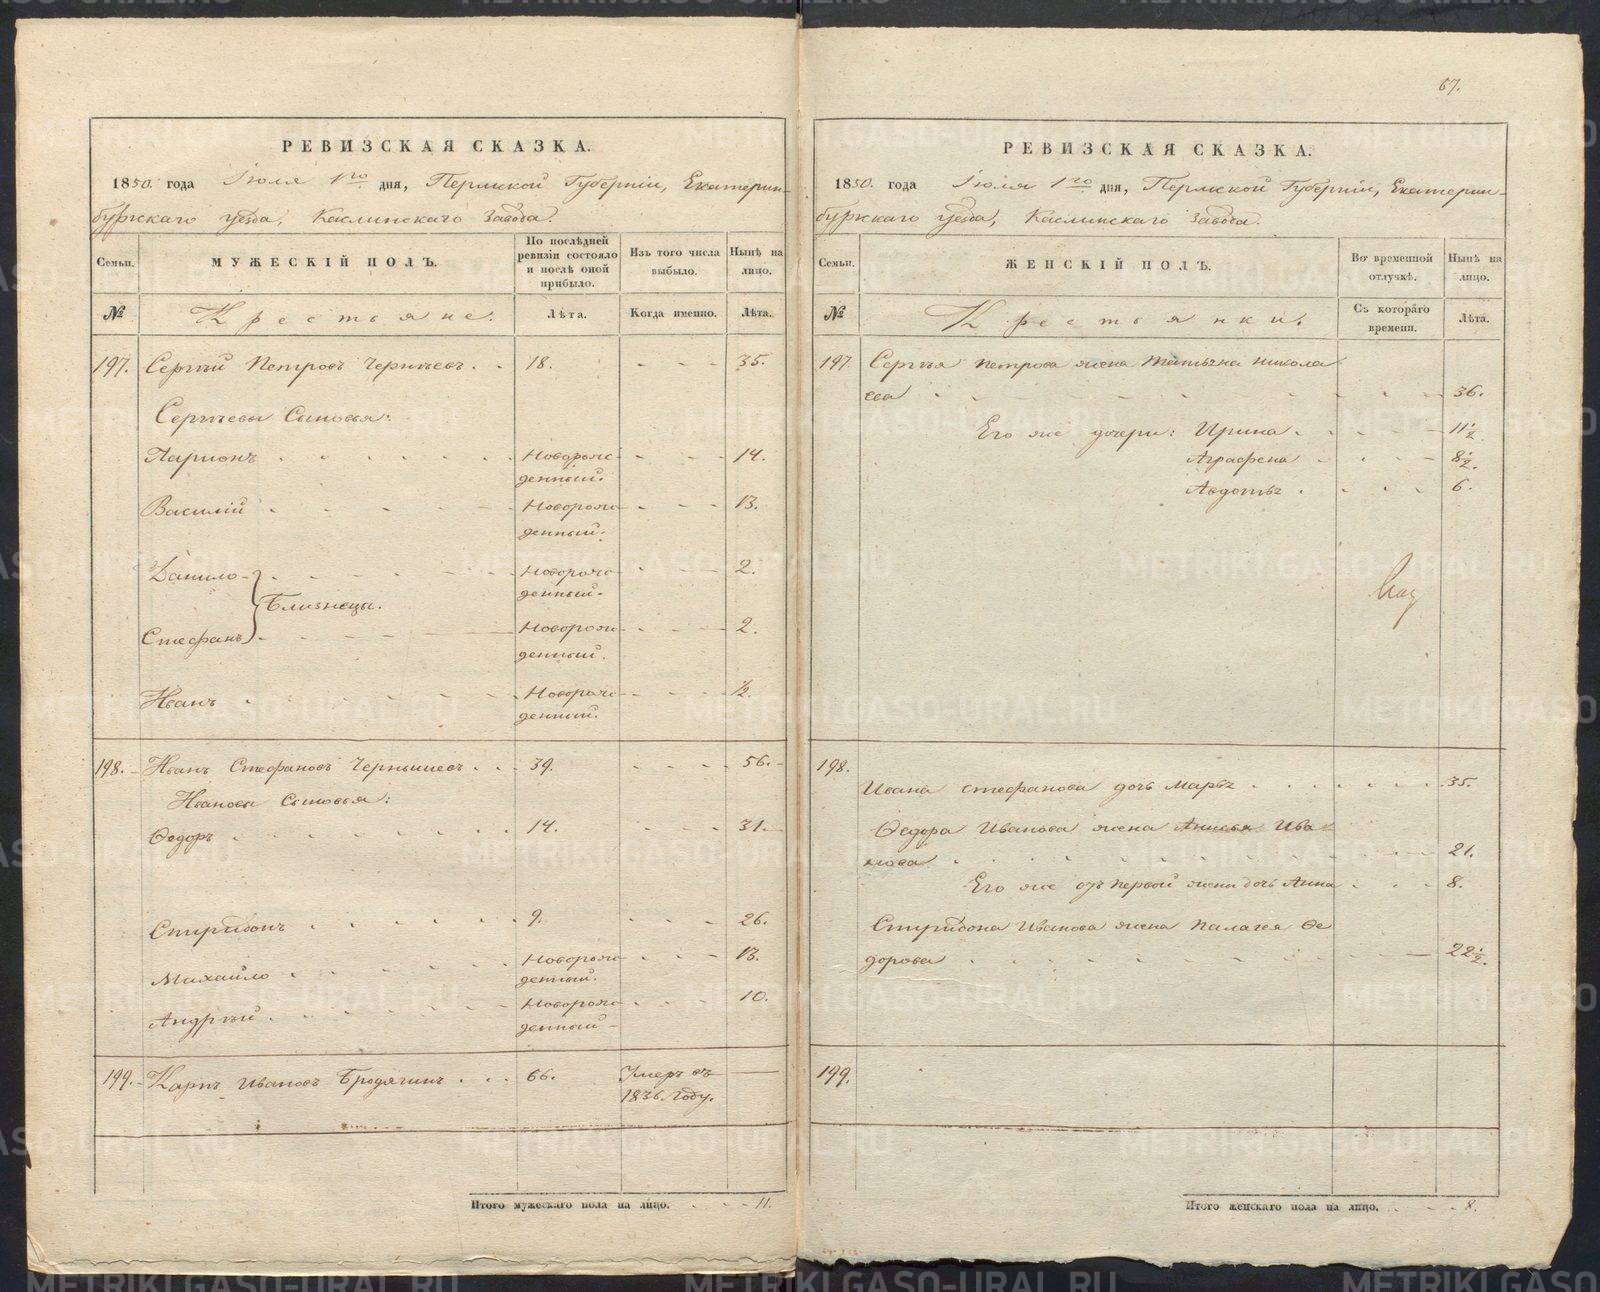 РЕВИЗСКАЯ СКАЗКА.
1850. года Іюля 1го дня, Пермской Губерніи, Екатерин-
бургскаго уѣзда, Каслинскаго Завода.
Семьи.
МУЖЕСКІЙ ПОЛЪ.
По послѣдней ревизіи состояло и послѣ оной прибыло.
Изъ того числа выбыло.
Нынѣ на лицо.
№
Крестьяне.
Лѣта.
Когда именно.
Лѣта.
197. Сергѣй Петровъ Чернышевъ. . 18. - - - 35.
Сергѣевы Сыновья:
Ларионъ Новорож- - - - 14.
денный.
Василій Новорож- - - - 13.
денный.
Данило Новорож- - - - 2.
денный.
Близнецы.
Стефанъ Новорож- - - - 2.
денный.
Иванъ Новорож- - - - ½.
денный.
198. Иванъ Стефановъ Чернышевъ . . . 39. - - - - 56.
Ивановы Сыновья:
Ѳедоръ 14. - - - 31.
Спиридонъ 9. - - - 26.
Михайло Новорож- - - - 13.
денный.
Андрѣй Новорож- - - - 10.
денный
199. Карпъ Ивановъ Бродягинъ . . . 66. Умеръ въ —
1836. году.
Итого мужескаго пола на лицо. - - - 11.
67.
РЕВИЗСКАЯ СКАЗКА.
1850. года Іюля 1го дня, Пермской Губерніи, Екатерин-
бургскаго уѣзда, Каслинскаго Завода.
Семьи.
ЖЕНСКІЙ ПОЛЪ.
Во временной отлучкѣ.
Нынѣ на лицо.
№
Крестьянки.
Съ котораго времени.
Лѣта.
197. Сергѣя Петрова жена Татьяна Никола
ева 36.
Его же дочери: Ирина 11½
Аграфена 8½.
Авдотья 6.
198.
Ивана Стефанова дочь Марья 35.
Ѳедора Иванова жена Анисья Ива
нова 21.
Его же отъ первой жены дочь Анна 8.
Спиридона Иванова жена Палагея Ѳе
дорова 22½.
199.
Итого женскаго пола на лицо. - - - 8.
METRIKI.GASO-URAL.RU